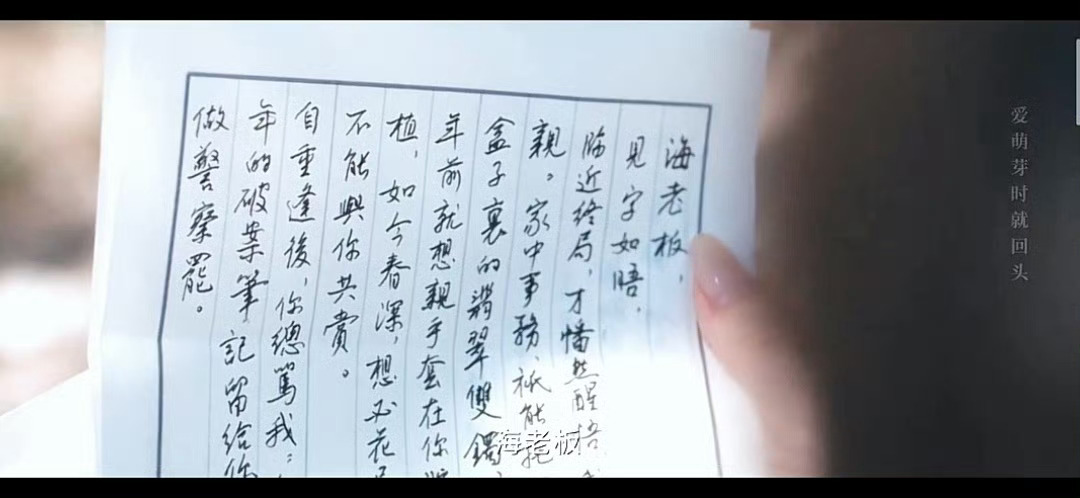 海老板，
見字如晤，
臨近终局，才幡然醒悟
親。家中事務，祇能
盒子裏的翡翠雙鐲
年前就想親手套在你
植，如今春深，想必花
不能與你共賞。
自重逢後，你總罵我：
年的破案筆記留給你
做警察罷。
海老板
爱萌芽时就回头